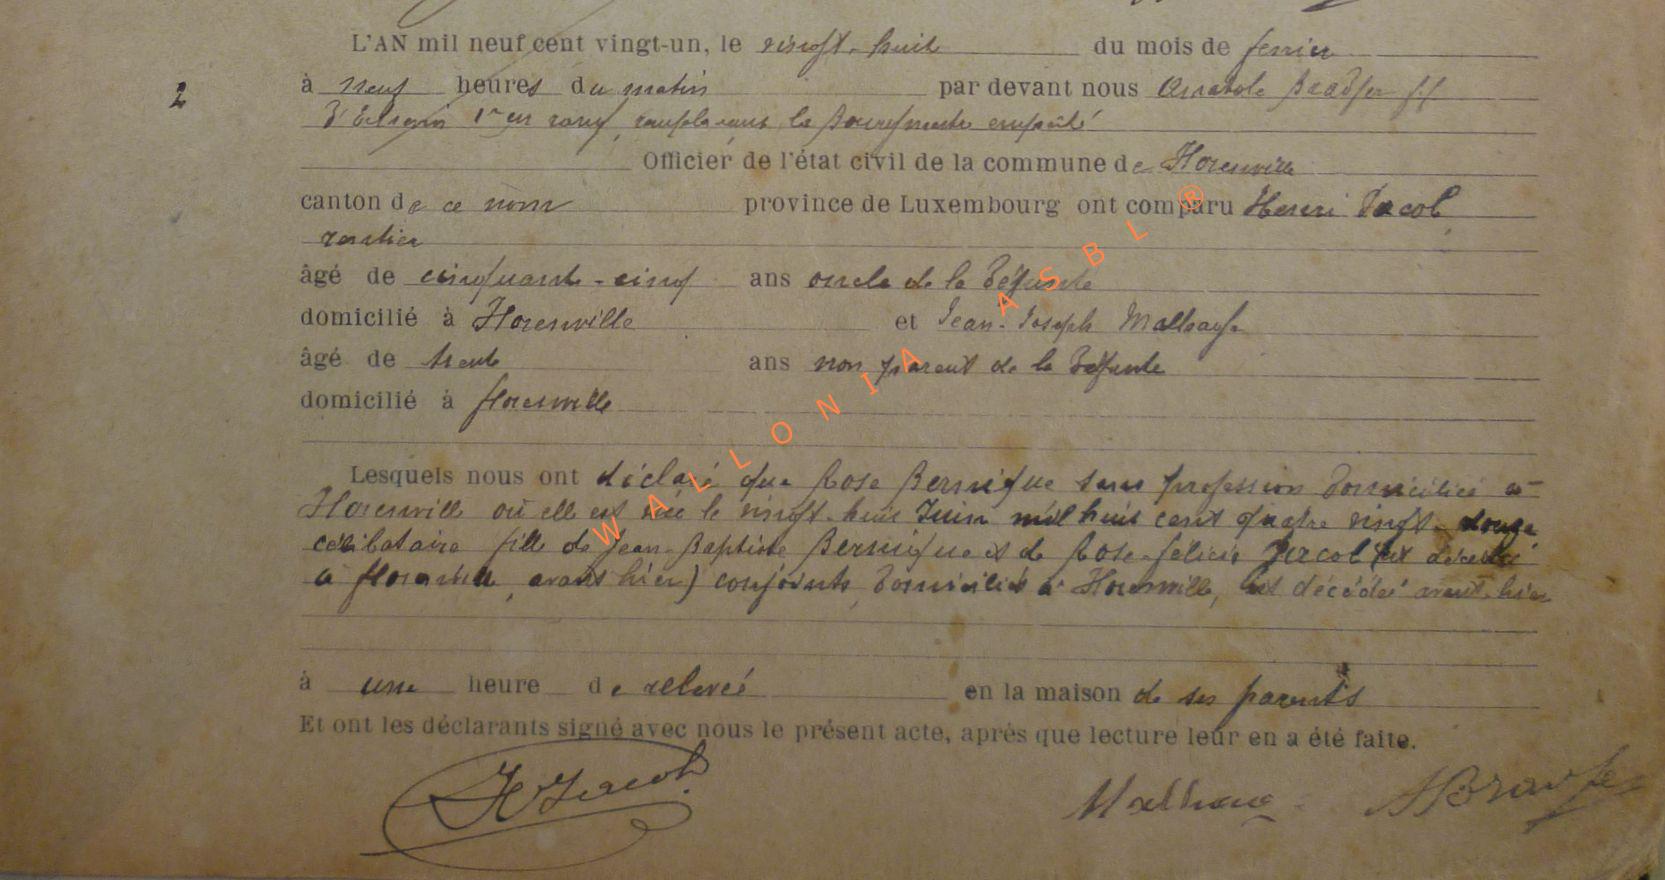 L'AN mil neuf cent vingt-un, le vingt-huit du mois de fevrier
2
à neuf heures du matin par devant nous Anatole ff
d'Echevin 1er en rang, remplaçant le Bourgmestre empêché
Officier de l'état civil de la commune de Florenville
canton de ce nom province de Luxembourg ont comparu Henri Jacob,
rentier
âgé de cinquante-cinq ans oncle de la défunte
domicilié à Florenville et Jean-Joseph
âgé de trente ans non parent de la défunte
domicilié à florenville
Lesquels nous ont déclaré que Rose Bernique sans profession domiciliée à
Florenville où elle est née le vingt-huit Juin mil huit cent quatre vingt-douze
célibataire fille de Jean-Baptiste Bernique et de Rose-félicie Jacob (est décédée
à florenville, avant hier) conjoints, domiciliés à Florenville, est décédée avant-hier
à une heure de relevée en la maison de ses parents
Et ont les déclarants signé avec nous le présent acte, après que lecture leur en a été faite.
H Jacob
WALLONIA ASBL ®